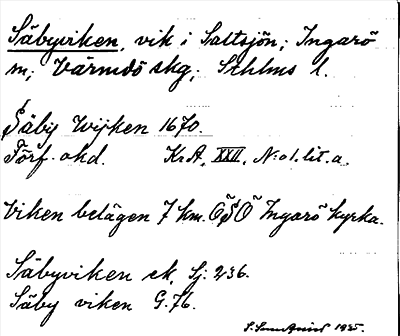 Säbyviken, vik i Saltsjön; Ingarö
sn; Värmdö skg; Sthlms l.
Säby Wijken 1670.
Förf. okd. K.A. XXII. N:o 1. lit. a.
Viken belägen 7 km. ÖSÖ Ingarö kyrka.
Säbyviken ek. Sj: 236.
Säby viken G. 76.
1935.